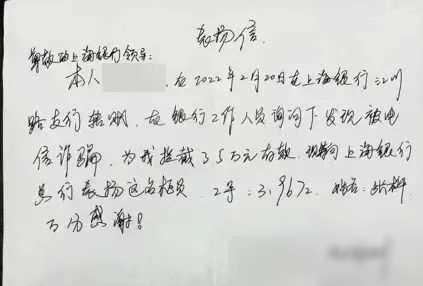 表扬信
尊敬的上海银行领导:
本人 在2022年2月20日在上海银行
路支行 在银行工作人员询问下发现被电
信诈骗,为我拦截了5万元存款,现特向上海银行
总行表扬这名柜员,工号:319672,姓名:
万分感谢!